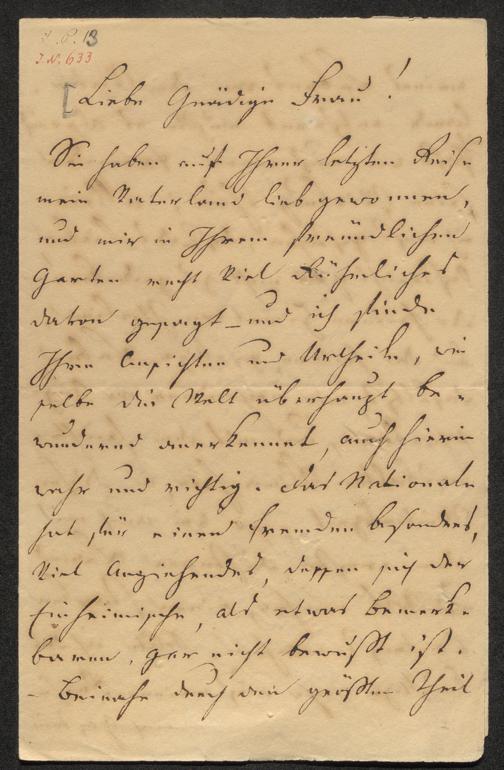 I. P. 13
I.N. 633
[Liebe Gnädige Frau!
Sie haben auf Ihrer letzten Reise
mein Vaterland lieb gewonnen,
und mir in Ihrem freundlichen
Garten recht Viel Rühmliches
davon gesagt – und ich finde
Ihre Ansichten und Urtheile, wie
selbe die Welt überhaupt be-
wundernd anerkennet, auch hierin
wahr und richtig. Das Nationale
hat für einen Fremden besonders,
Viel Anziehendes, dessen sich der
Einheimische, als etwas Bemerk-
baren, gar nicht bewußt ist.
– Beinahe durch den größten Theil